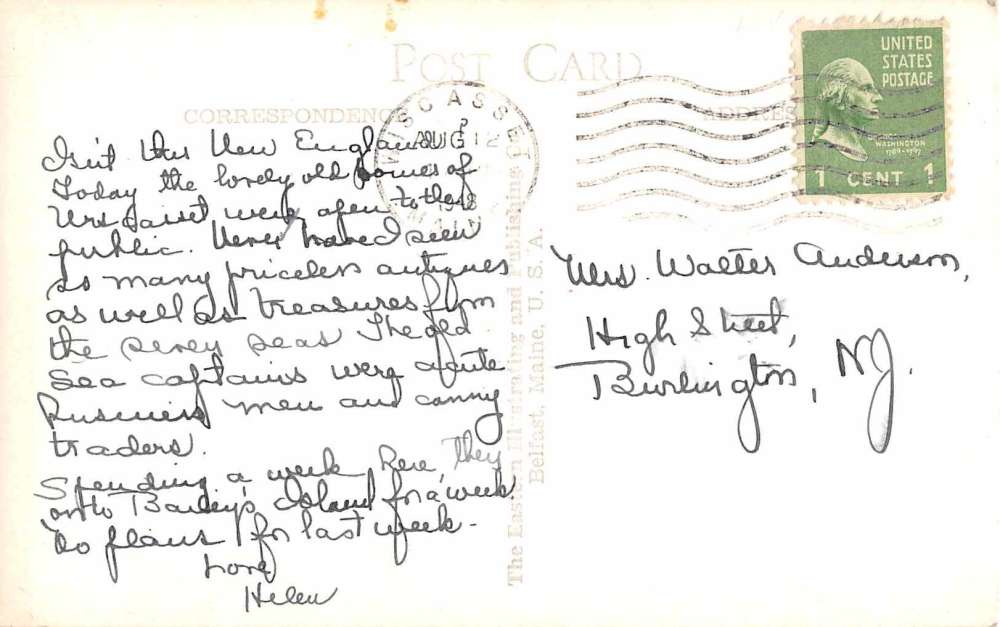 POST CARD
CORRESPONDENCE
ADDRES
WISCASSET
AUG 12
P
1948
UNITED
STATES
POSTAGE
WASHINGTON
1789-1797
1 CENT 1
Isn't this New England
Today the lovely old homes of
Wiscasset were open to the
public. Never have I seen
so many priceless antiques
as well as treasures from
the seven seas The old
Sea captains were acute
Business men and canny
traders.
Spending a week here, then
on to Bailey's Island for a week
No plans for last week-
Love
Helen
The Eastern Illustrating and Publishing Co
Belfast, Maine, U. S. A.
Mrs. Walter Anderson,
High Street,
Burlington, NJ.